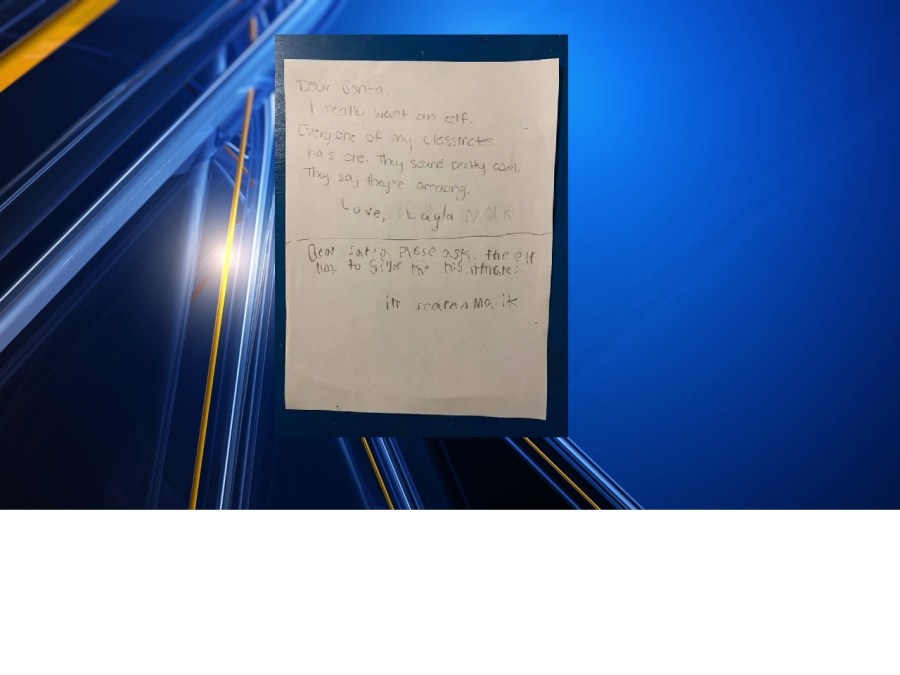 Dear Santa.
I really want an elf.
Every one of my classmates
has one. They sound pretty cool.
They say they're amazing.
Love, Layla
Dear Santa Plese ask the elf
not to give me
it scares